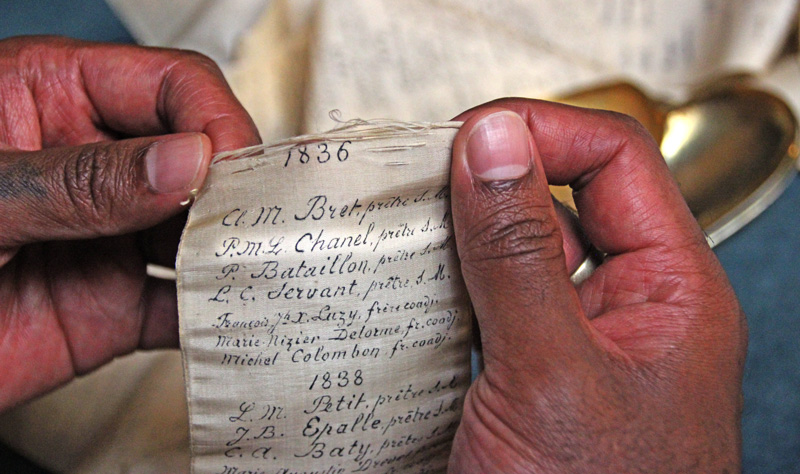 1836
Cl. M. Bret, prêtre S. M.
P. M. L. Chanel, prêtre S. M.
P. Bataillon, prêtre S. M.
L. C. Servant, prêtre, S. M.
François, Jh X. Luzy, frère coadj.
Marie-Nizier Delorme, fr. coadj.
Michel Colombon, fr. coadj.
1838
L. M. Petit, prêtre S. M.
J. B. Epalle, prêtre S. M.
C. A. Baty, prêtre S.
Marie Augustin